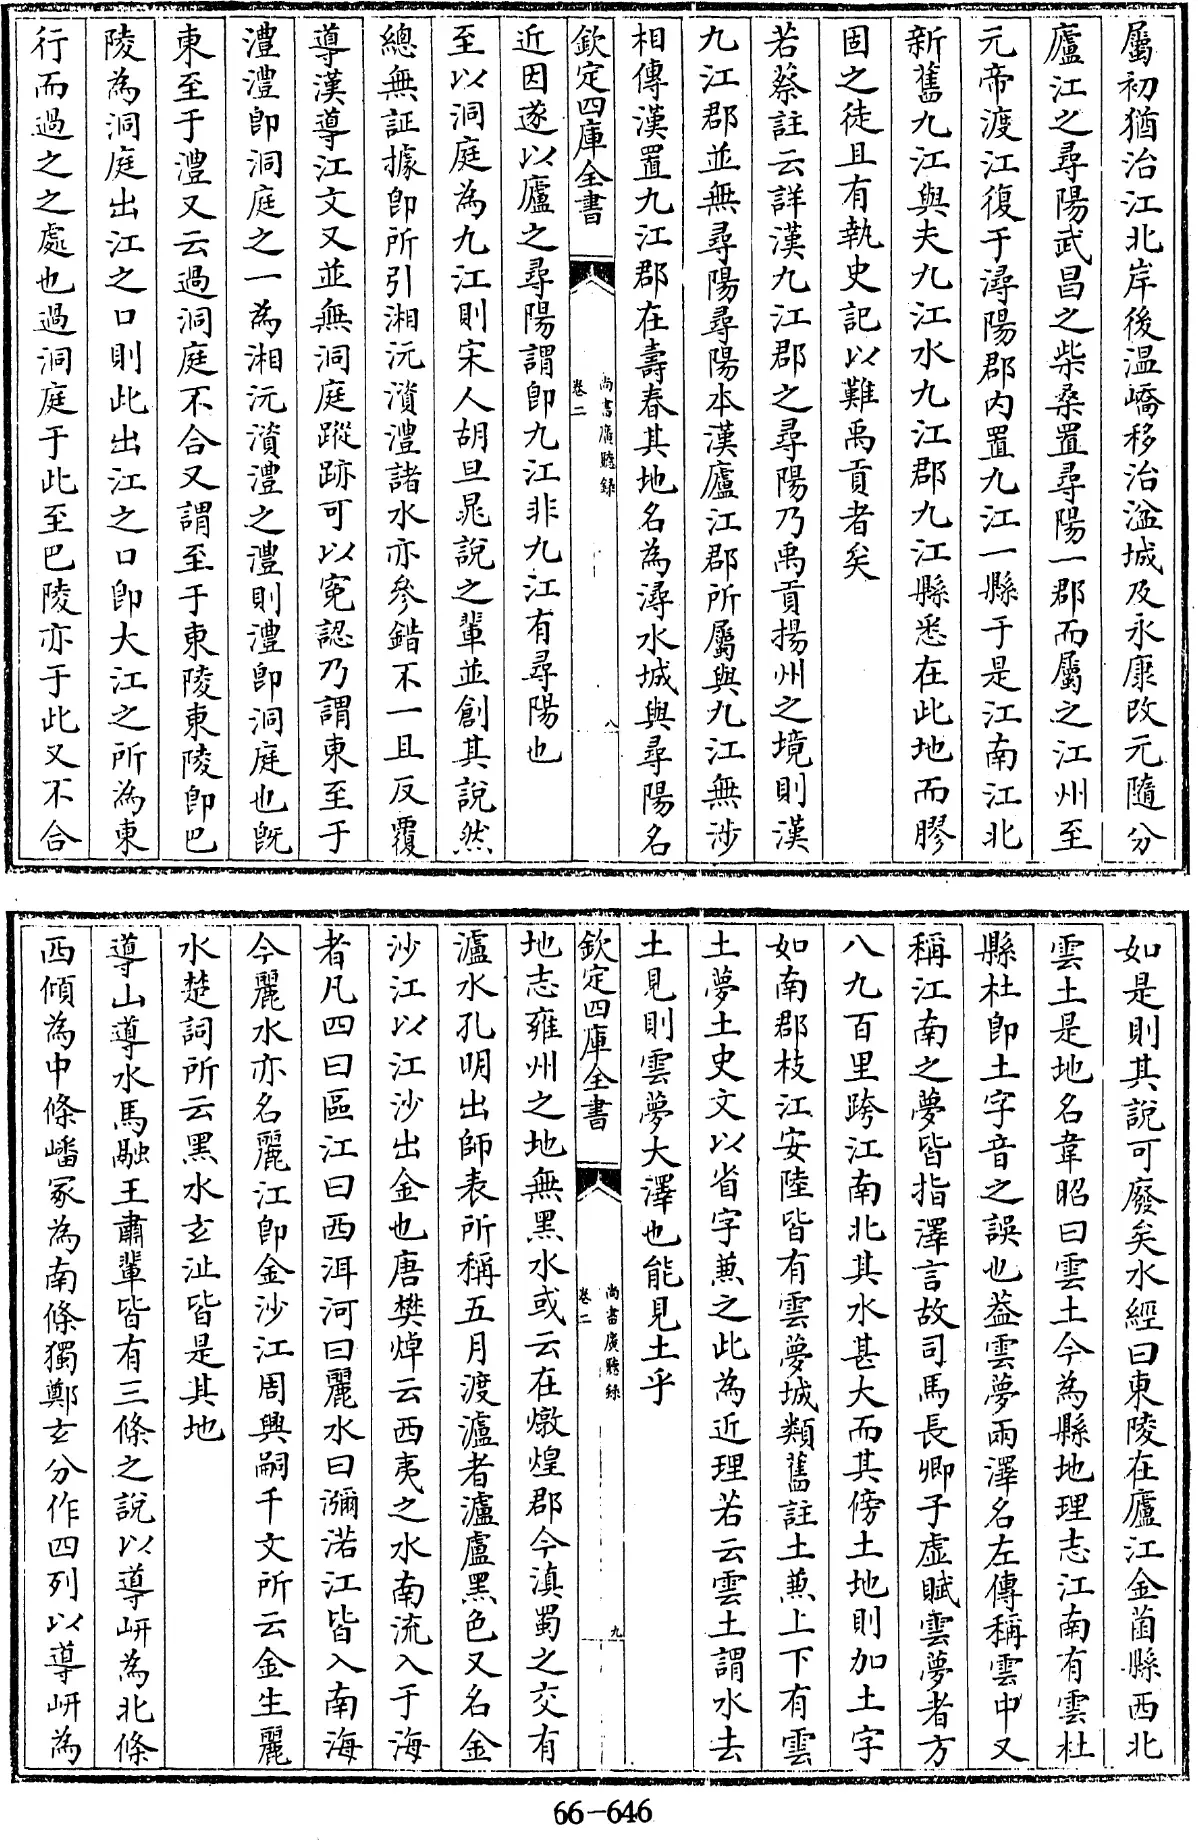 屬初猶治江北岸後温嶠移治湓城及永康改元隨分
廬江之尋陽武昌之柴桑置尋陽一郡而屬之江州至
元帝渡江復于潯陽郡內置九江一縣于是江南江北
新舊九江與夫九江水九江郡九江縣悉在此地而膠
固之徒且有執史記以難禹貢者矣
若蔡註云詳漢九江郡之尋陽乃禹貢揚州之境則漢
九江郡並無尋陽尋陽本漢廬江郡所屬與九江無涉
相傳漢置九江郡在壽春其地名為潯水城與尋陽名
欽定四庫全書
尚書廣聽録
卷二
八
近因遂以廬之尋陽謂卽九江非九江有尋陽也
至以洞庭為九江則宋人胡旦晁說之輩並創其說然
總無証據卽所引湘沅濱澧諸水亦參錯不一且反覆
導漢導江文又並無洞庭蹤跡可以寃認乃謂東至于
澧澧卽洞庭之一為湘沅濱澧之澧則澧卽洞庭也旣
東至于澧又云過洞庭不合又謂至于東陵東陵卽巴
陵為洞庭出江之口則此出江之口卽大江之所為東
行而過之之處也過洞庭于此至巴陵亦于此又不合
如是則其說可廢矣水經曰東陵在廬江金蘭縣西北
雲土是地名韋昭曰雲土今為縣地理志江南有雲杜
縣杜卽土字音之誤也葢雲夢兩澤名左傳稱雲中又
稱江南之夢皆指澤言故司馬長卿子虛賦雲夢者方
八九百里跨江南北其水甚大而其傍土地則加土字
如南郡枝江安陸皆有雲夢城類舊註土蕪上下有雲
土夢土史文以省字蕪之此為近理若云雲土謂水去
土見則雲夢大澤也能見土乎
欽定四庫全書
尚書廣聽録
卷二
九
地志雍州之地無黑水或云在燉煌郡今滇蜀之交有
瀘水孔明出師表所稱五月渡瀘者瀘盧黑色又名金
沙江以江沙出金也唐樊焯云西夷之水南流入于海
者凡四曰區江曰西洱河曰麗水曰瀰渃江皆入南海
今麗水亦名麗江卽金沙江周興嗣千文所云金生麗
水楚詞所云黑水玄沚皆是其地
導山導水馬融王肅輩皆有三條之說以導岍為北條
西傾為中條嶓冢為南條獨鄭玄分作四列以導岍為
66-646